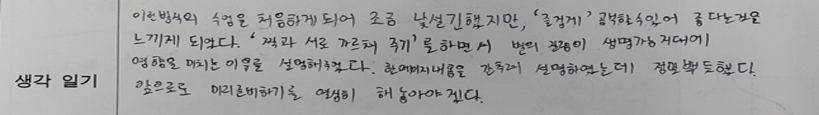 이런방식의 수업을 처음하게되어 조금 낯설긴했지만, '즐겁게' 공부할수있어 좋다는것을
느끼게 되었다. '짝과 서로 가르쳐 주기'를하면서 별의 질량이 생명가능지대에
영향을 미치는 이유를 설명해주었다. 한페이지내용을 간추려 설명하였는데 정말뿌듯했다.
생각 일기
앞으로도 미리준비하기를 열심히 해 놓아야겠다.